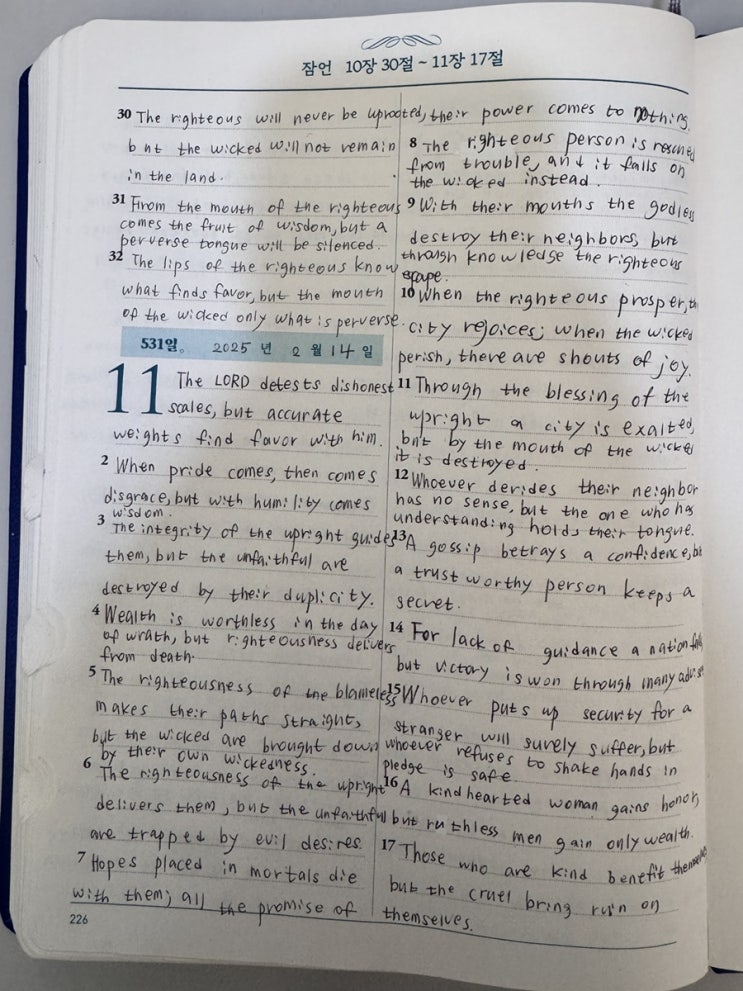 잠언 10장 30절 ~ 11장 17절
30 The righteous will never be uprooted,
but the wicked will not remain
in the land.
31 From the mouth of the righteous
comes the fruit of wisdom, but a
perverse tongue will be silenced.
32 The lips of the righteous know
what finds favor, but the mouth
of the wicked only what is perverse.
531일. 2025 년 2 월 14 일
11 The LORD detests dishonest
scales, but accurate
weights find favor with him.
2 When pride comes, then comes
disgrace, but with humility comes
wisdom.
3 The integrity of the upright guides
them, but the unfaithful are
destroyed by their duplicity.
4 Wealth is worthless in the day
of wrath, but righteousness delivers
from death.
5 The righteousness of the blameless
makes their paths straight,
but the wicked are brought down
by their own wickedness.
6 The righteousness of the upright
delivers them, but the unfaithful
are trapped by evil desires.
7 Hopes placed in mortals die
with them; all the promise of
226
their power comes to nothing.
8 The righteous person is rescued
from trouble, and it falls on
the wicked instead.
9 With their mouths the godless
destroy their neighbors, but
through knowledge the righteous
escape.
10 When the righteous prosper, th
city rejoices; when the wicked
perish, there are shouts of joy.
11 Through the blessing of the
upright a city is exalted,
but by the mouth of the wicked
it is destroyed.
12 Whoever derides their neighbor
has no sense, but the one who has
understanding holds their tongue.
13 A gossip betrays a confidence, but
a trustworthy person keeps a
secret.
14 For lack of guidance a nation falls
but victory is won through many
15 Whoever puts up security for a
stranger will surely suffer, but
whoever refuses to shake hands in
pledge is safe.
16 A kindhearted woman gains honor,
but ruthless men gain only wealth.
17 Those who are kind benefit themselves
but the cruel bring ruin on
themselves.